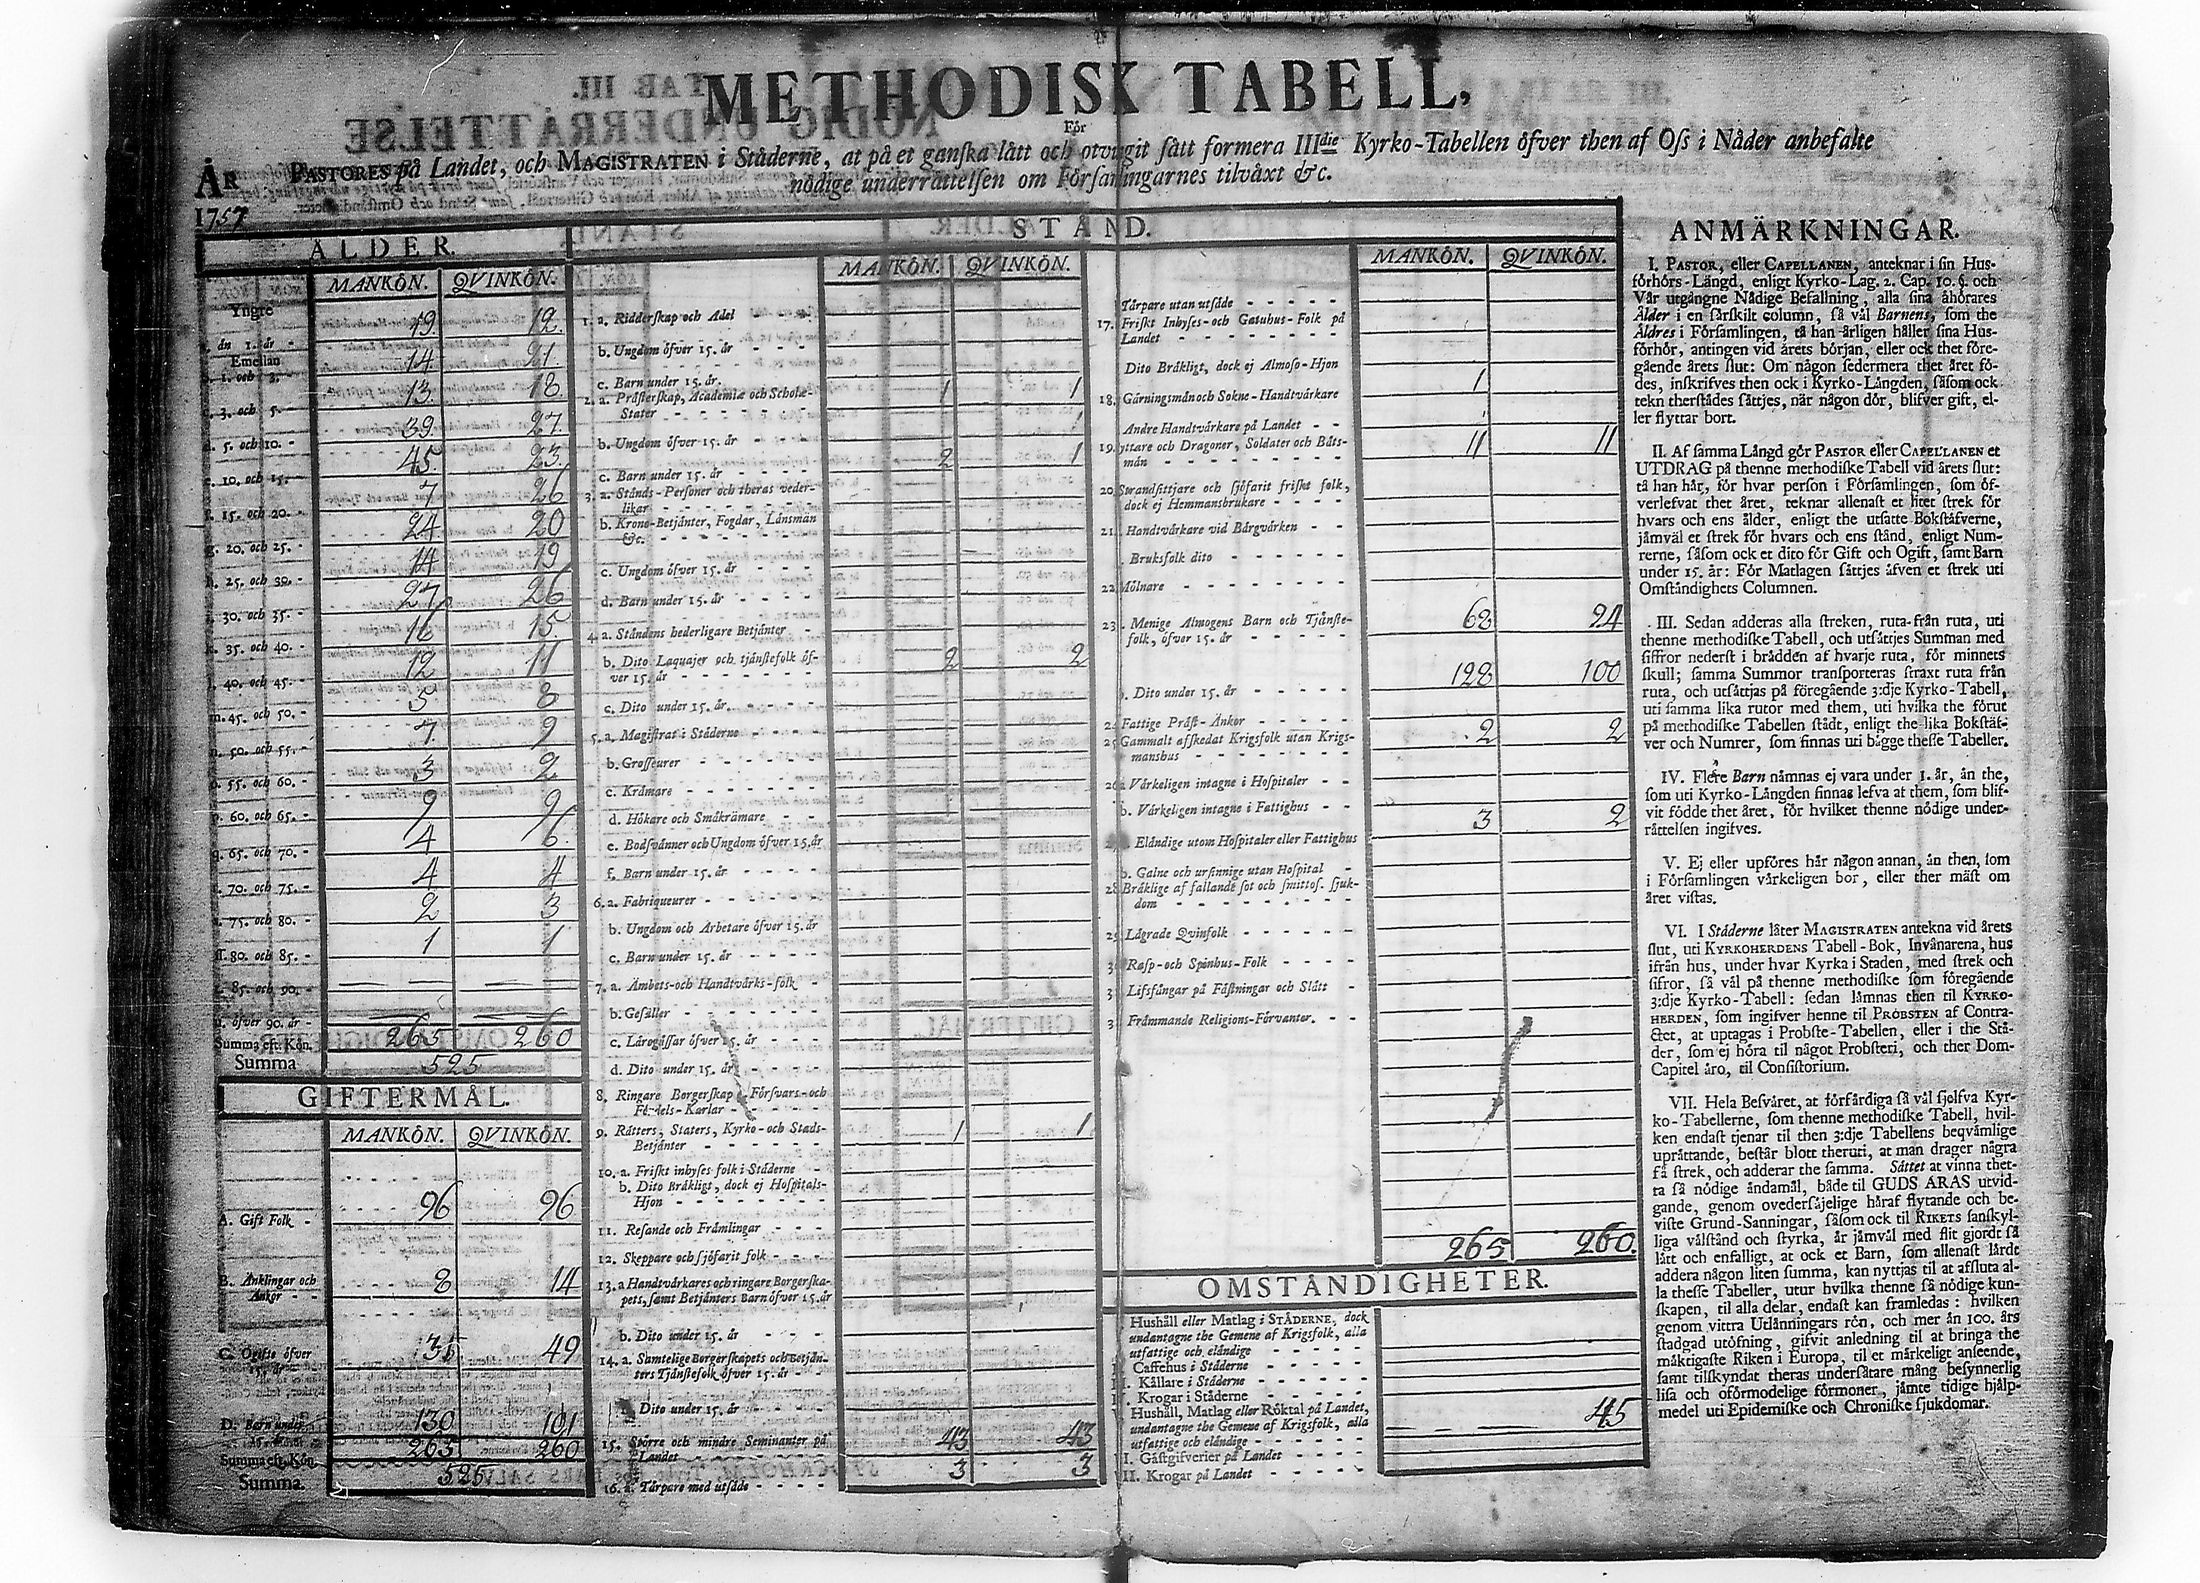 METHODISK TABELL,
För
PASTORES på Landet, och MAGISTRATEN i Ståderne, at på et ganska lått och otvugit sått formera IIIdie Kyrko-Tabellen öfver then af Oss i Nåder anbefalte
nödige underråttelsen om Församlingarnes tilvåxt &c.
ÅR
1757
ÅLDER.
MANKÖN. QVINKÖN.
Yngre
än 1. år - 19 12.
Emellan
1. och 3. - 14 21.
3. och 5. 13 18
d. 5. och 10. - 39. 27.
e. 10. och 15. - 45. 23.
f. 15. och 20. - 7 26
g. 20. och 25. - 24 20
h. 25. och 30. - 14 19
i. 30. och 35. - 27 26
k. 35. och 40. - 16 15
l. 40. och 45. - 12 11
m. 45. och 50. - 5 8
n. 50. och 55. - 7 9
o. 55. och 60. - 3 2
p. 60. och 65. - 9 9
q. 65. och 70. - 4 6.
r. 70. och 75. - 4 4
s. 75. och 80. - 2 3
ff. 80. och 85. - 1 1
t. 85. och 90. - — — — —
u. öfver 90. år -
Summa eft. Kön. 265 260
Summa 525
GIFTERMÅL.
MANKÖN. QVINKÖN.
A. Gift Folk - 96 96
B. Änklingar och
Änkor - - 8 14
C. Ogifte öfver
15. år - 35 49
D. Barn under
15. år 130 101
Summa eft. Kön. 265 260
Summa. 525
STÅND.
MANKÖN. QVINKÖN.
1. a. Ridderskap och Adel
b. Ungdom öfver 15. år - - -
c. Barn under 15. år.
2. a. Pråsterskap, Academiæ och Scholæ-
Stater - - - - - - - 1 1
b. Ungdom öfver 15. år - - - -
c. Barn under 15. år - - - - 2 1
3. a. Stånds-Personer och theras veder-
likar - - - - - - -
b. Krono-Betjänter, Fogdar, Länsmän
&c. - - - - - - - -
c. Ungdom öfver 15. år - - - -
d. Barn under 15. år - - - - -
4. a. Ståndens hederligare Betjänter -
b. Dito Laquajer och tjänstefolk öf-
ver 15. år - - - - - - - 2 2
c. Dito under 15. år. - - - - -
5. a. Magistrat i Ståderne - - - -
b. Grosseurer - - - - - - -
c. Kråmare - - - - - - -
d. Hökare och Småkrämare - - -
e. Bodsvänner och Ungdom öfver 15. år
f. Barn under 15. år - - - - -
6. a. Fabriqueurer - - - - - -
b. Ungdom och Arbetare öfver 15. år
c. Barn under 15. år - - - - -
7. a. Ämbets-och Handtvårks-folk -
b. Gesäller - - - - - - -
c. Lärogåssar öfver 15. år - - -
d. Dito under 15. år - - - -
8. Ringare Borgerskap, Försvars-och
Fördels-Karlar - - - - -
9. Råtters, Staters, Kyrko-och Stads-
Betjänter - - - - - - 1 1
10. a. Friskt inhyses folk i Ståderne -
b. Dito Bråkligt, dock ej Hospitals-
Hjon - - - - - - -
11. Resande och Främlingar - - -
12. Skeppare och sjöfarit folk - - -
13. a Handtvårkares och ringare Borgerska-
pets, samt Betjänters Barn öfver 15. år
b. Dito under 15. år - - - -
14. a. Samtelige Borgerskapets och Betjän-
ters Tjänstefolk öfver 15. år - - -
Dito under 15. år - - - -
15. Större och mindre Seminanter på 43 43
Landet - - - - - - - 3 3
16. a. Tårpare med utsåde - - - -
MANKÖN. QVINKÖN.
Tårpare utan utsåde - - - - -
17. Friskt Inhyses-och Gatuhus-Folk på
Landet - - - - - - -
Dito Bråkligt, dock ej Almoso-Hjon
1
18. Gärningsmän och Sokne-Handtvårkare
Andre Handtvårkare på Landet - -
19. yttare och Dragoner, Soldater och Båts-
män - - - - - - - - 11 11
20. Strandsittjare och sjöfarit friskt folk,
dock ej Hemmansbrukare - - - -
21. Handtvårkare vid Bårgvårken - -
Bruksfolk dito - - - - - -
22. Mölnare - - - - - - -
23. Menige Almogens Barn och Tjänste- 62 94
folk, öfver 15. år - - - - -
b. Dito under 15. år - - - - - 128 100
24. Fattige Präst-Änkor - - - - -
25. Gammalt afskedat Krigsfolk utan Krigs- 2 2
manshus - - - - - - -
26. a Vårkeligen intagne i Hospitaler - -
b. Vårkeligen intagne i Fattighus - - 3 2
Eländige utom Hospitaler eller Fattighus
b. Galne och ursinnige utan Hospital -
28. Bråklige af fallande sot och smittos. sjuk-
dom - - - - - - - -
29. Lägrade Qvinfolk - - - - -
30. Rasp-och Spånhus-Folk - - - -
31. Lifsfångar på Fåstningar och Slått -
32. Främmande Religions-Förvanter. - -
265 260.
OMSTÅNDIGHETER.
Hushåll eller Matlag i STÅDERNE, dock
undantagne the Gemene af Krigsfolk, alla
utfattige och eländige - - - - -
Caffehus i Ståderne - - - - -
Källare i Ståderne - - - - -
Krogar i Ståderne - - - - -
Hushåll, Matlag eller Röktal på Landet, 45
undantagne the Gemene af Krigsfolk, alla
utfattige och eländige - - - - -
I. Gåstgifverier på Landet - - - -
II. Krogar på Landet - - - - -
ANMÄRKNINGAR.
I. PASTOR, eller CAPELLANEN, anteknar i sin Hus-
förhörs-Längd, enligt Kyrko-Lag. 2. Cap. 10. §. och
Vår utgångne Nådige Befallning, alla sina åhörares
Ålder i en särskilt column, så väl Barnens, som the
Åldres i Församlingen, tå han årligen håller sina Hus-
förhör, antingen vid årets början, eller ock thet före-
gående årets slut: Om någon sedermera thet året fö-
des, inskrifves then ock i Kyrko-Längden, såsom ock
tekn therstädes såttjes, när någon dör, blifver gift, el-
ler flyttar bort.
II. Af samma Längd gör PASTOR eller CAPELLANEN et
UTDRAG på thenne methodiske Tabell vid årets slut:
tå han hår, för hvar person i Församlingen, som öf-
verlefvat thet året, teknar allenast et litet strek för
hvars och ens ålder, enligt the utsatte Bokståfverne,
jåmväl et strek för hvars och ens stånd, enligt Num-
rerne, såsom ock et dito för Gift och Ogift, samt Barn
under 15. år: För Matlagen såttjes åfven et strek uti
Omståndighets Columnen.
III. Sedan adderas alla streken, ruta från ruta, uti
thenne methodiske Tabell, och utsåttjes Summan med
siffror nederst i brådden af hvarje ruta, för minnets
skull; samma Summor transporteras straxt ruta från
ruta, och utsåttjas på föregående 3:dje Kyrko-Tabell,
uti samma lika rutor med them, uti hvilka the förut
på methodiske Tabellen stådt, enligt the lika Bokståf-
ver och Numrer, som finnas uti bägge thesse Tabeller.
IV. Flere Barn nåmnas ej vara under 1. år, än the,
som uti Kyrko-Längden finnas lefva af them, som blif-
vit födde thet året, för hvilket thenne nödige under-
råttelsen ingifves.
V. Ej eller upföres hår någon annan, än then, som
i Församlingen vårkeligen bor, eller ther måst om
året vistas.
VI. I Ståderne låter MAGISTRATEN antekna vid årets
slut, uti KYRKOHERDENS Tabell-Bok, Invånarena, hus
ifrån hus, under hvar Kyrka i Staden, med strek och
sifror, så väl på thenne methodiske som föregående
3:dje Kyrko-Tabell: sedan låmnas then til KYRKO-
HERDEN, som ingifver henne til PROBSTEN af Contra-
ctet, at uptagas i Probste-Tabellen, eller i the Stå-
der, som ej höra til något Probsteri, och ther Dom-
Capitel åro, til Consistorium.
VII. Hela Besvåret, at förfärdiga så väl sjelfva Kyr-
ko-Tabellerne, som thenne methodiske Tabell, hvil-
ken endast tjenar til then 3:dje Tabellens beqvåmlige
upråttande, består blott theruti, at man drager några
få strek, och adderar the samma. Såttet at vinna thet-
ta så nödige ändamål, både til GUDS ÄRAS utvid-
gande, genom ovedersåjelige håraf flytande och be-
viste Grund-Sanningar, såsom ock til RIKETS sanskyl-
liga vålstånd och styrka, år jåmvål med flit gjordt så
lått och enfalligt, at ock et Barn, som allenast lårdt
addera någon liten summa, kan nyttjas til at afsluta al-
la thesse Tabeller, utur hvilka thenne så nödige kun-
skapen, til alla delar, endast kan framledas: hvilken
genom vittra Utlånningars rön, och mer än 100. års
stadgad utöfning, gifvit anledning til at bringa the
måktigaste Riken i Europa, til et mårkeligt anseende,
samt tilskyndat theras undersåtare mång besynnerlig
lisa och oförmodelige förmoner, jåmte tidige hjålp-
medel uti Epidemiske och Chroniske sjukdomar.